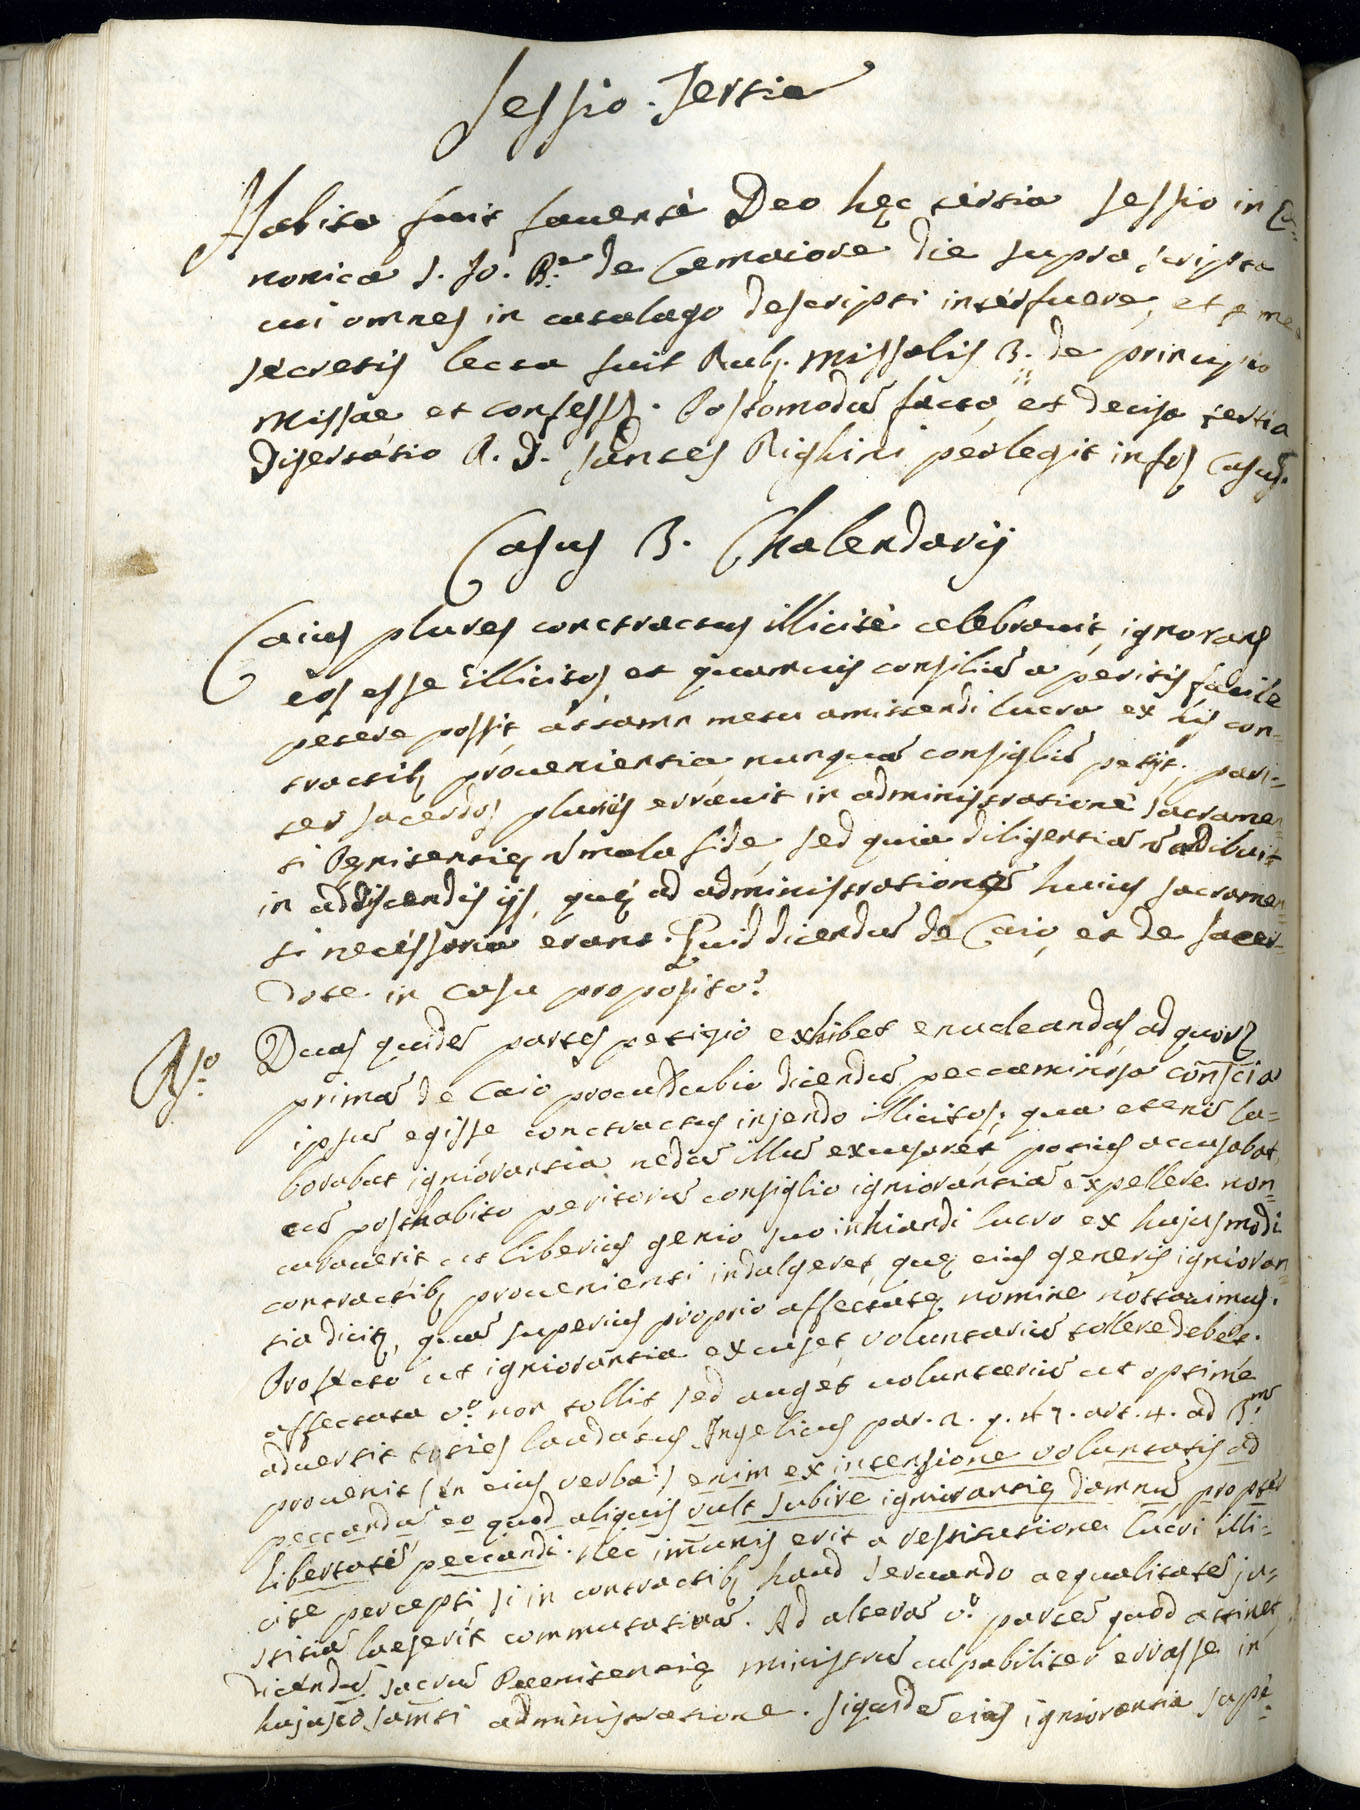 Sessio Tertia
Habita fuit favente Deo hęc tertia sessio in Ca-
nonica S. Jo. Bª de Camaiore die supra scripta
cui omnes in catalago descripti interfuere, et a me
secretis lecta fuit Rub. Missalis 3. de principio
Missae et confess. Postomodū facto, et decisa tertia
Disertatio R. D. Santes Righini perlegit infos Casus.
Casus 3. Khalendarij
Caius plures conctractus illicitè celebravit, ignorans
eos esse illicitos, et quamvis consiliū a peritis facile
petere possit, attamn metu amittendi lucra ex his con-
tractibȝ provenientia nunquā consigliū petijt; pari-
ter sacerdos pluries erravit in administratione sacramen-
ti Pęnitentię nō mala fide, sed quia diligentiā nō adibuit
in addiscendis ijs, quę ad administrationē huius sacramen-
ti necessaria erant. Quid dicendū de Caio, et de sacer-
dote in casu proposito?
Rsº. Duas quidē partes petizio exhibet enucleandas, ad quorȝ
primā de Caio proculdubio dicendū peccaminosa consciā
ipsum egisse conctractus injendo illicitos; qua etenim la-
borabat igniorantia nedū illū excusaret, potius accusabat,
cū posthabito peritorū consiglio igniorantiā expellere non
curaverit ut liberius genio suo inhiandi lucro ex hujusmodi
contractibȝ provenienti indulgeret, quę eius generis ignioran-
tia dicitȝ, quā superius proprio affectatę nomine nottavimus.
Profecto ut igniorantia excuset, voluntariū tollere debet.
affectata vº. non tollit, sed auget voluntariū ut optimè
advertit toties laudatus Angelicus par. 2. q. 47. art. 4. ad 3ᵐ
provenit (en eius verba:) enim ex intensione voluntatis ad
peccandū eo quod aliquis vult subire igniorantię damnū propter
libertatē peccandi. Nec immunis erit a restitutione lucri illi-
cite percepti si in contractibȝ haud servando aequalitatē ju-
stitiā laeserit commutativā. Ad alterā vº. partem quod attinet,
dicendū sacrū Paenitentię ministrū culpabiliter errasse in
hujusce samti administratione. Siquidē eius igniorantia supe-